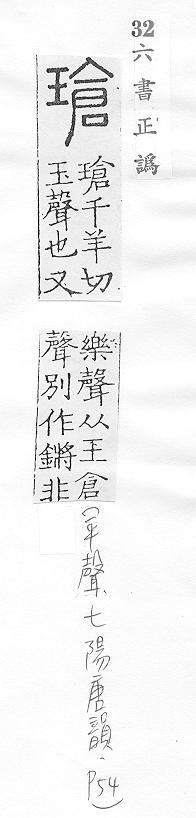 32六書正譌
瑲
瑲千羊切
玉聲也又
樂聲从王倉
聲別作鏘非
(平聲七陽唐韻、P54)